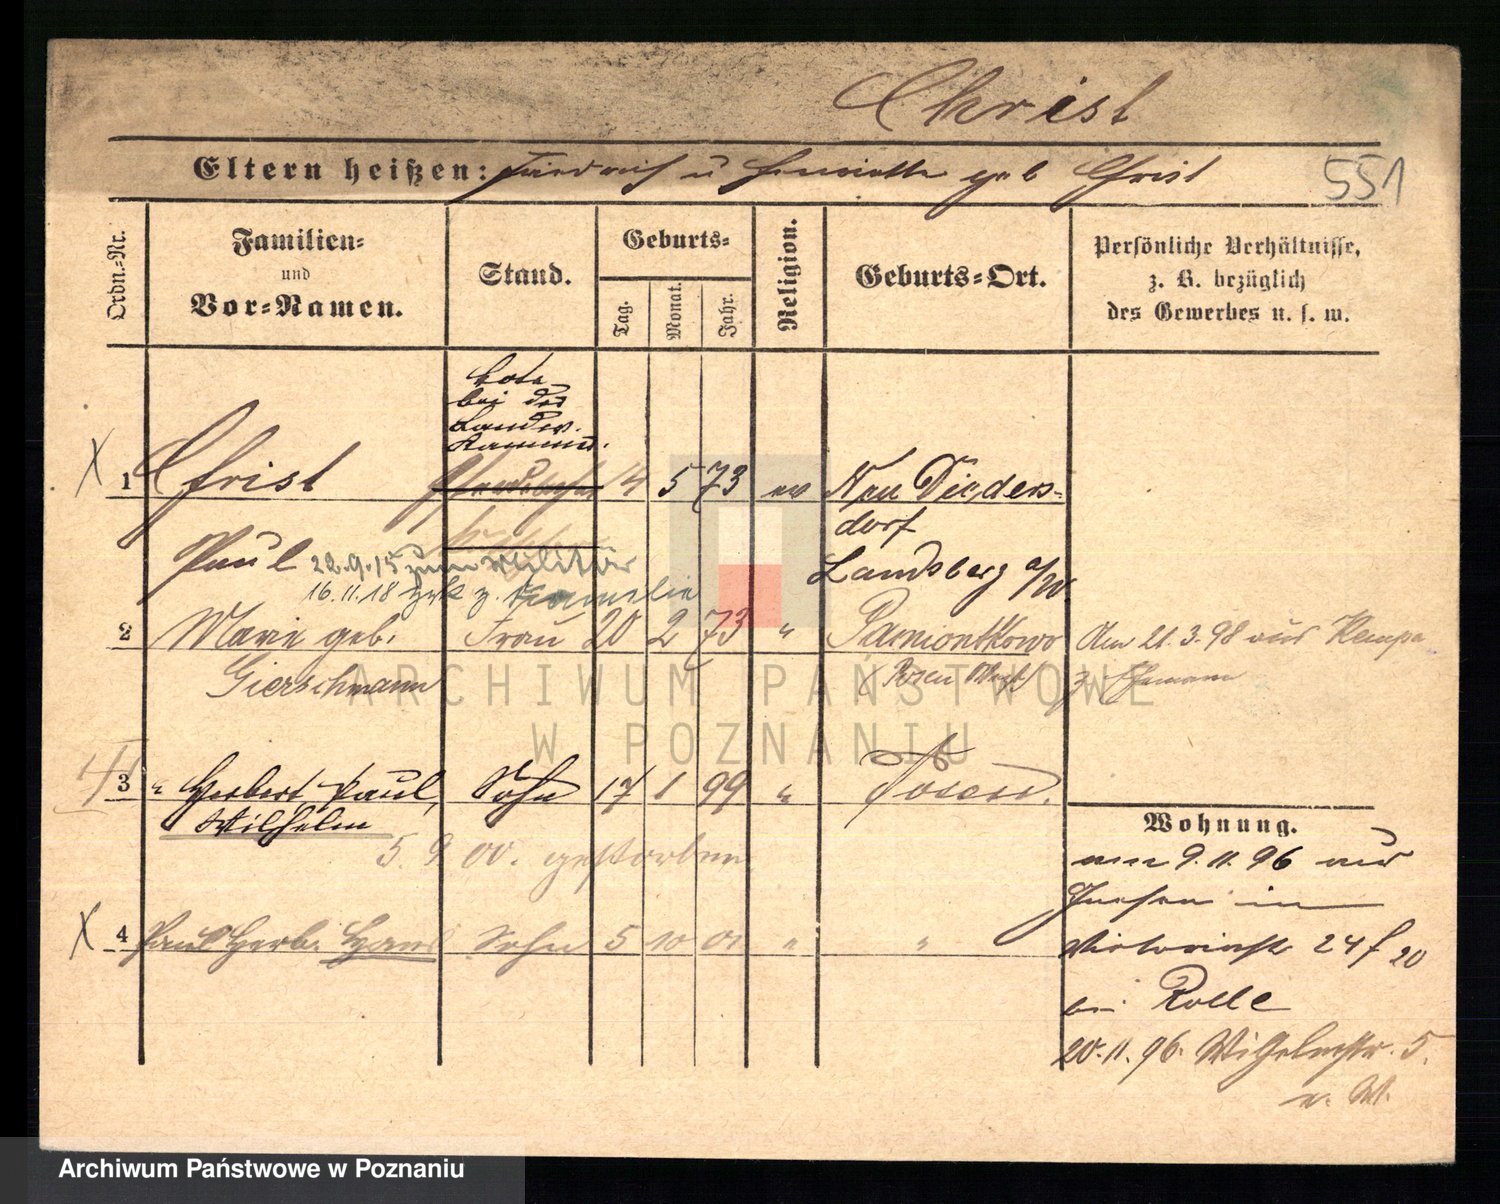 Christ
Eltern heißen: Friedrich u Henriette geb Christ
551
Ordn.-Nr.
Familien-
und
Vor-Namen.
Stand.
Geburts-
Tag.
Monat.
Jahr.
Religion.
Geburts-Ort.
Persönliche Verhältnisse,
z. B. bezüglich
des Gewerbes u. s. w.
Bote
bei der
Landes.
X 1 Christ 14 5 73 ev Neu Dieders-
dorf
Paul 22.9.15 zum Militär
Landsberg a/W.
16.11.18 zrk z. Familie
2 Marie geb. Frau 20 2 73 " Pamiontkowo
Am 21.3.98 aus Kempen
Gierschmann
(Posen West)
z. Ehemann
3 " Herbert Paul, Sohn 17 1 99 " Posen.
Wilhelm
5. 9. 00. gestorben
X 4 Paul Herb. Hans Sohn 5 10 01 " "
Wohnung.
am 9.11.96 aus
Gnesen in
Victoriastr 24 f 20
bei Rolle
20.11.96. Wilhelmstr. 5.
ARCHIWUM PAŃSTWOWE
W POZNANIU
Archiwum Państwowe w Poznaniu